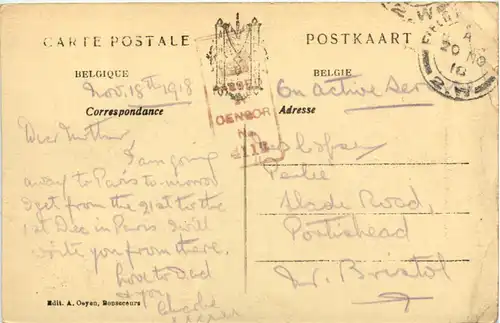 CARTE POSTALE
POSTKAART
BELGIQUE
BELGIË
Nov. 18th 1918
On active Ser
Correspondance
Adresse
CENSOR
No
4113
Dear Mother
I am going
away to Paris to-morrow
I get from the 21st to the
1st Dec in Paris. I will
write you from there.
Love to Dad
& you
Charlie
Slade Road,
Portishead
Nr. Bristol
Edit. A. Ooyen, Bonsecours
20 NO
18